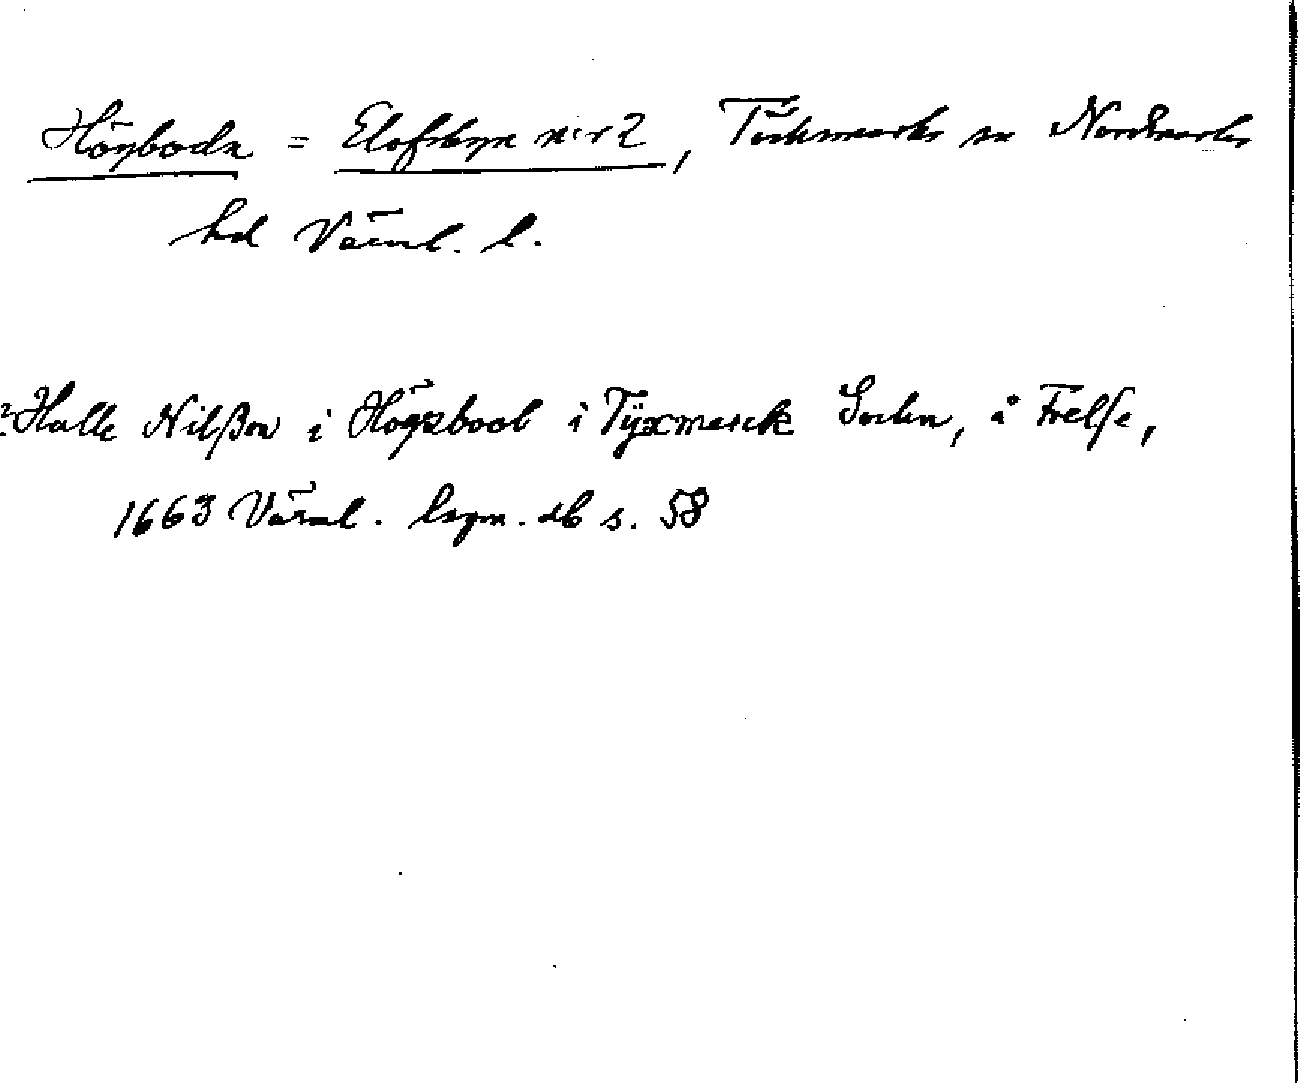 Högboda = Elofsbyn n:r 2, Töcksmarks sn Nordmarks
hd Värml. l.
? Halle Nilßon i Högzbool i Tÿxmarck Sochn, å Frelse,
1663 Värml. lagm. db s. 58